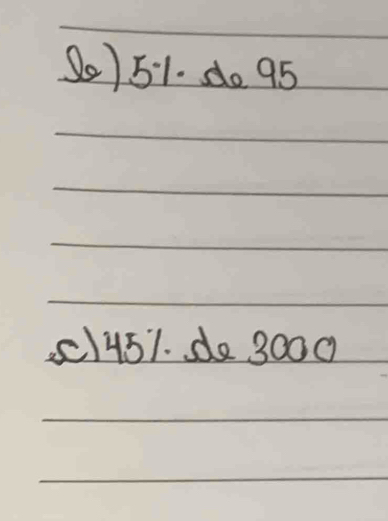 b) 5% de 95
c) 45% de 3000